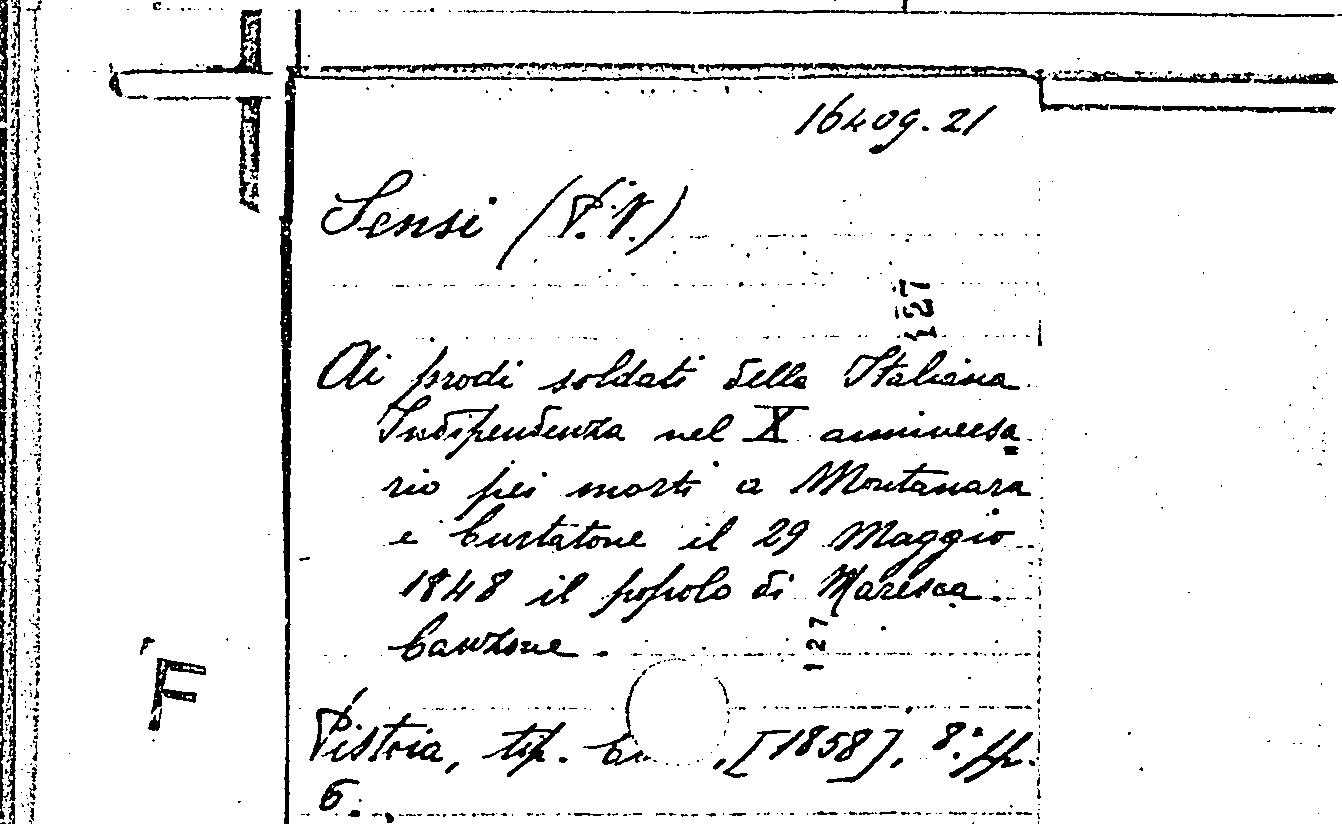 16409.21
Sensi (P. V.)
127
Ai prodi soldati della Italiana
Indipendenza nel X anniversa
rio pei morti a Montanara
e Curtatone il 29 Maggio
1848 il popolo di Maresca.
Canzone.
127
F
Pistoia, tip. , [1858], 8.° pp.
6.